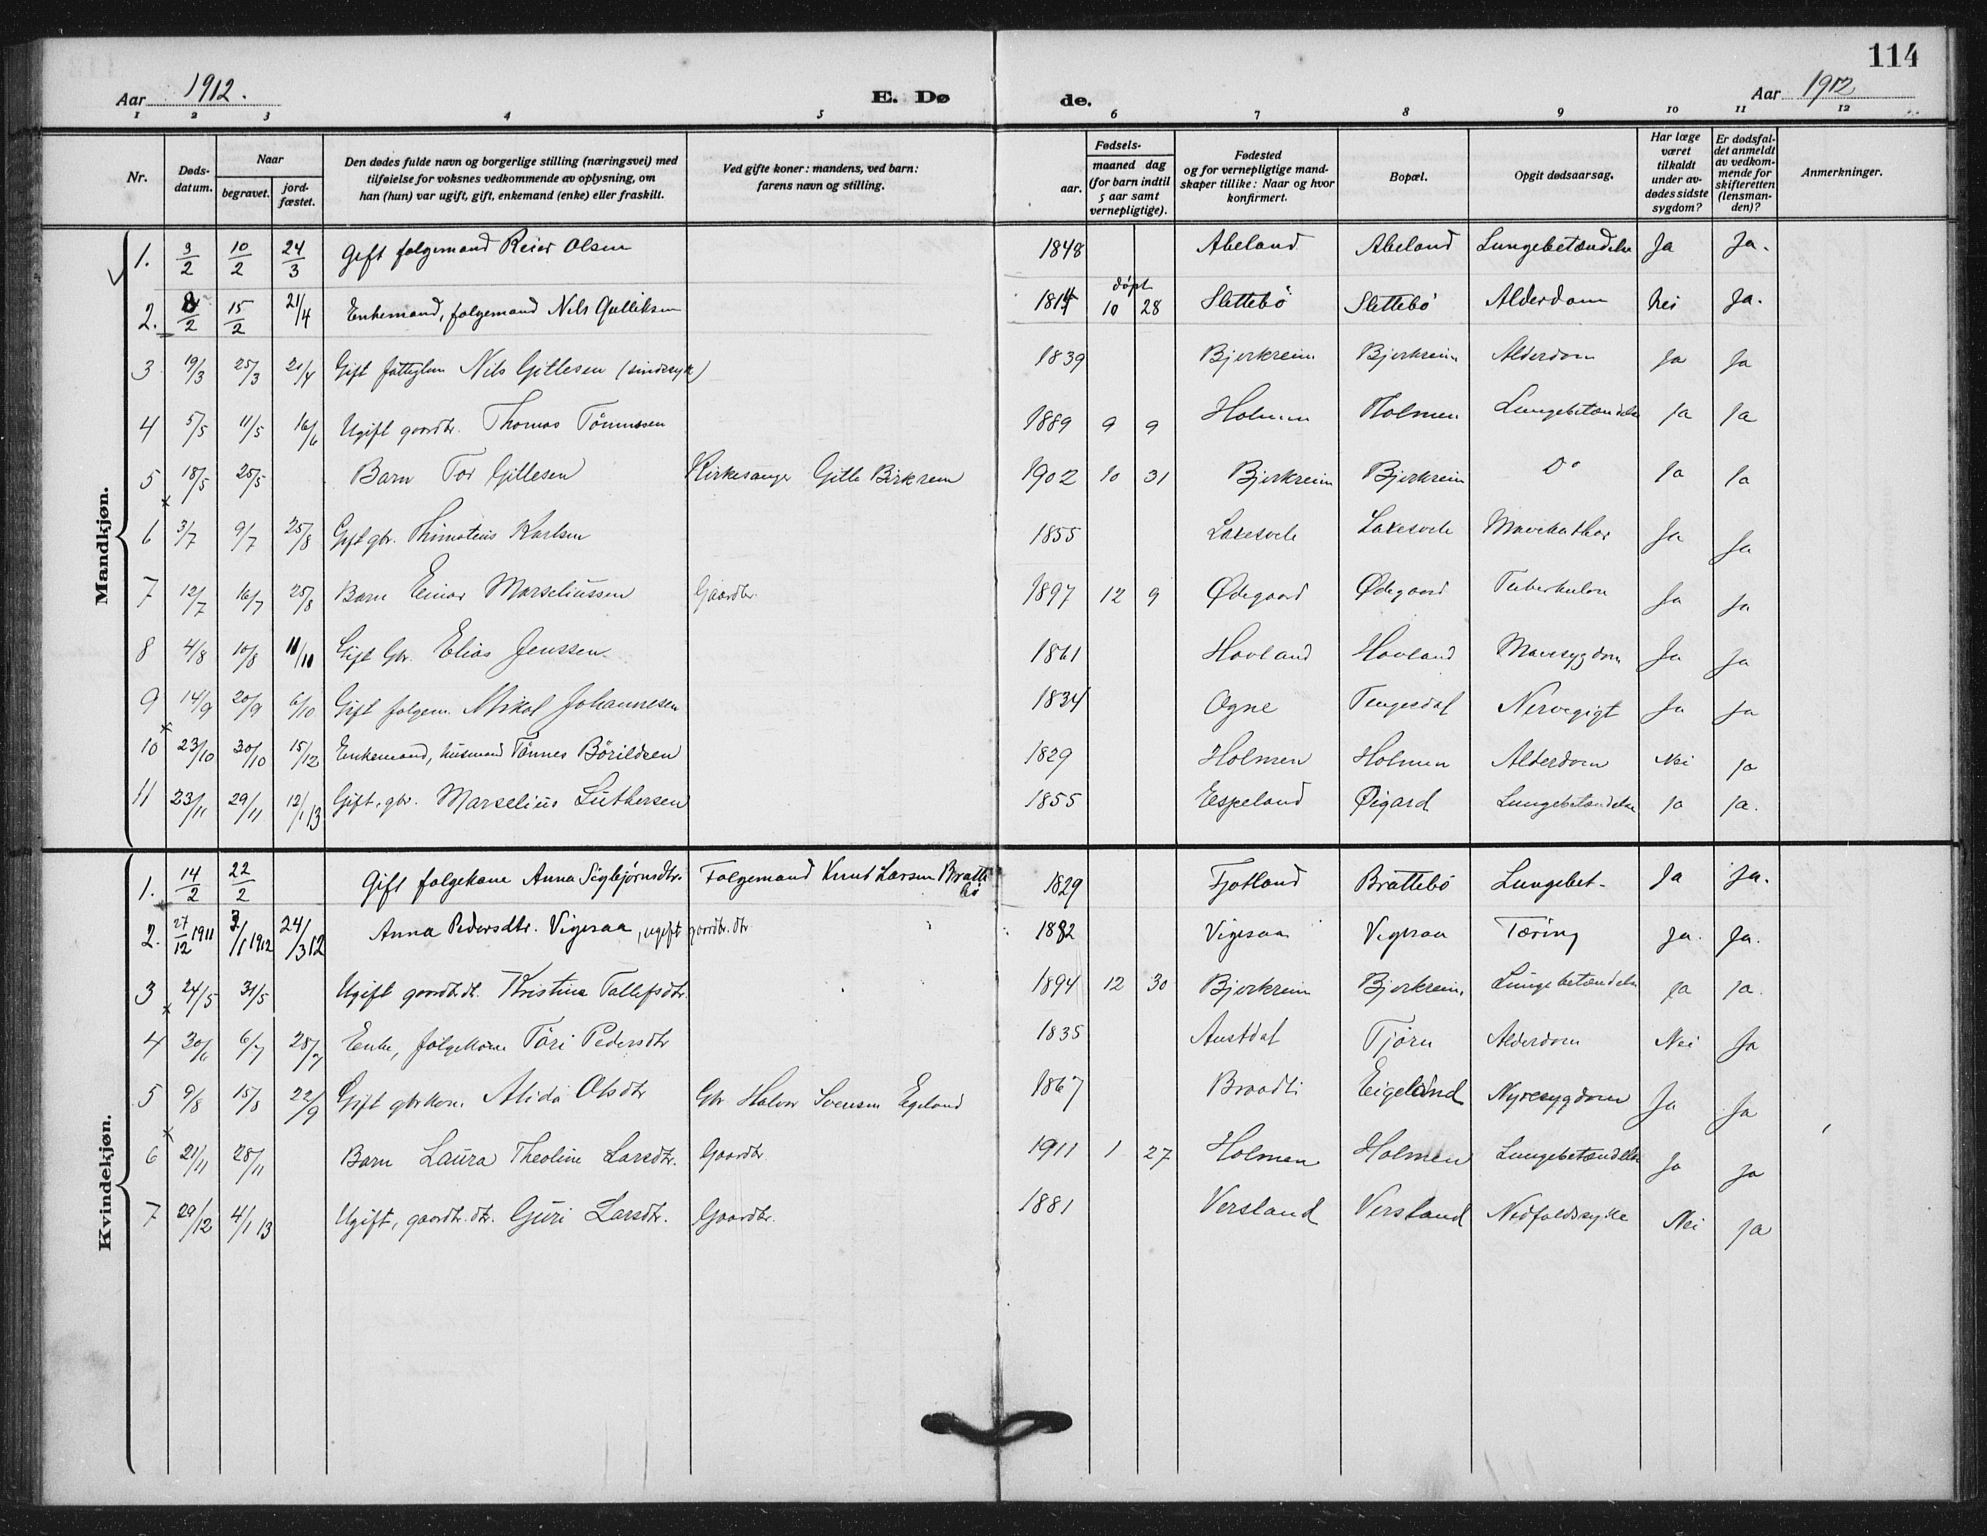 114
Aar 1912.
E. Dø de.
Aar 1912
1 2 3 4 5 6 7 8 9 10 11 12
Nr.
Døds-
datum.
Naar
begravet.
jord-
fæstet.
Den dødes fulde navn og borgerlige stilling (næringsvei) med
tilføielse for voksnes vedkommende av oplysning, om
han (hun) var ugift, gift, enkemand (enke) eller fraskilt.
Ved gifte koner: mandens, ved barn:
farens navn og stilling.
Fødsels-
aar.
maaned dag
(for barn indtil
5 aar samt
vernepligtige).
Fødested
og for vernepligtige mand-
skaper tillike: Naar og hvor
konfirmert.
Bopæl.
Opgit dødsaarsag.
Har læge
været
tilkaldt
under av-
dødes sidste
sygdom?
Er dødsfal-
det anmeldt
av vedkom-
mende for
skifteretten
(lensman-
den)?
Anmerkninger.
Mandkjøn.
1. 3/2 10/2 24/3 Gift folgemand Reier Olsen 1848 Abeland Abeland Lungebetændelse Ja Ja.
døpt
2. 8/2 15/2 21/4 Enkemand, folgemand Nils Gulliksen 1814 10 28 Slettebö Slettebö Alderdom Nei Ja.
3 19/3 25/3 21/4 Gift fattiglem Nils Gitlesen (sindssyk) 1839 Bjerkreim Bjerkreim Alderdom Ja Ja
4 5/5 11/5 16/6 Ugift gaardbr. Thomas Tönnessen 1889 9 9 Holmen Holmen Lungebetændelse Ja Ja
5 18/5 25/5 Barn Tor Gitlesen Kirkesanger Gitle Birkrem 1902 10 31 Bjerkreim Bjerkreim Do Ja Ja
6 3/7 9/7 25/8 Gift gbr. Thimoteus Karlsen 1855 Laksesvele Laksesvele Mavekathar Ja Ja
7 12/7 16/7 25/8 Barn Einar Marseliussen Gaardbr. 1897 12 9 Ødegaard Ødegaard Tuberkulose Ja Ja
8 4/8 10/8 11/10 Gift Gbr. Elias Jenssen 1861 Hovland Hovland Mavesygdom Ja Ja
9 14/9 20/9 6/10 Gift folgem. Mikal Johannesen 1834 Ogne Tengesdal Nervegigt Ja Ja
10 23/10 30/10 15/12 Enkemand, husmand Tönnes Börildsen 1829 Holmen Holmen Alderdom Nei Ja
11 23/11 29/11 12/1 13 Gift, gbr. Marselius Luthersen 1855 Espeland Øigard Lungebetændelse Ja Ja.
Kvindekjøn.
1. 14/2 22/2 Gift folgekone Anna Sigbjørnsdtr. Folgemand Knut Larsen Bratte
bø 1829 Fjotland Brattebö Lungebet. Ja Ja.
2. 27/12 1911 3/1 1912 24/3 12 Anna Pedersdtr. Vigesaa, ugift gaardbr. dtr 1882 Vigesaa Vigesaa Tæring Ja. Ja.
3 24/5 31/5 Ugift gaardb. dt. Kristina Tallefsdtr. 1894 12 30 Bjerkreim Bjerkreim. Lungebetændelse Ja Ja.
4 30/6 6/7 28/7 Enke, folgekone Töri Pedersdtr 1835 Austdal Tjörn Alderdom Nei Ja
5 9/8 15/8 22/9 Gift gbrkone Alida Olsdtr Gbr Halvor Svensen Egeland 1867 Eigeland Nyresygdom Ja Ja
6 21/11 28/11 Barn Laura Theoline Larsdtr. Gaardbr. 1911 1 27 Holmen Holmen Lungebetændelse Ja Ja
7 29/12 4/1 13 Ugift, gaardbr. dtr. Guri Larsdtr. Gaardbr. 1881 Versland Versland Nedfaldssyke Nei Ja